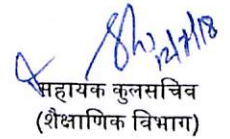 12/7/18
सहायक कुलसचिव
(शैक्षाणिक विभाग)